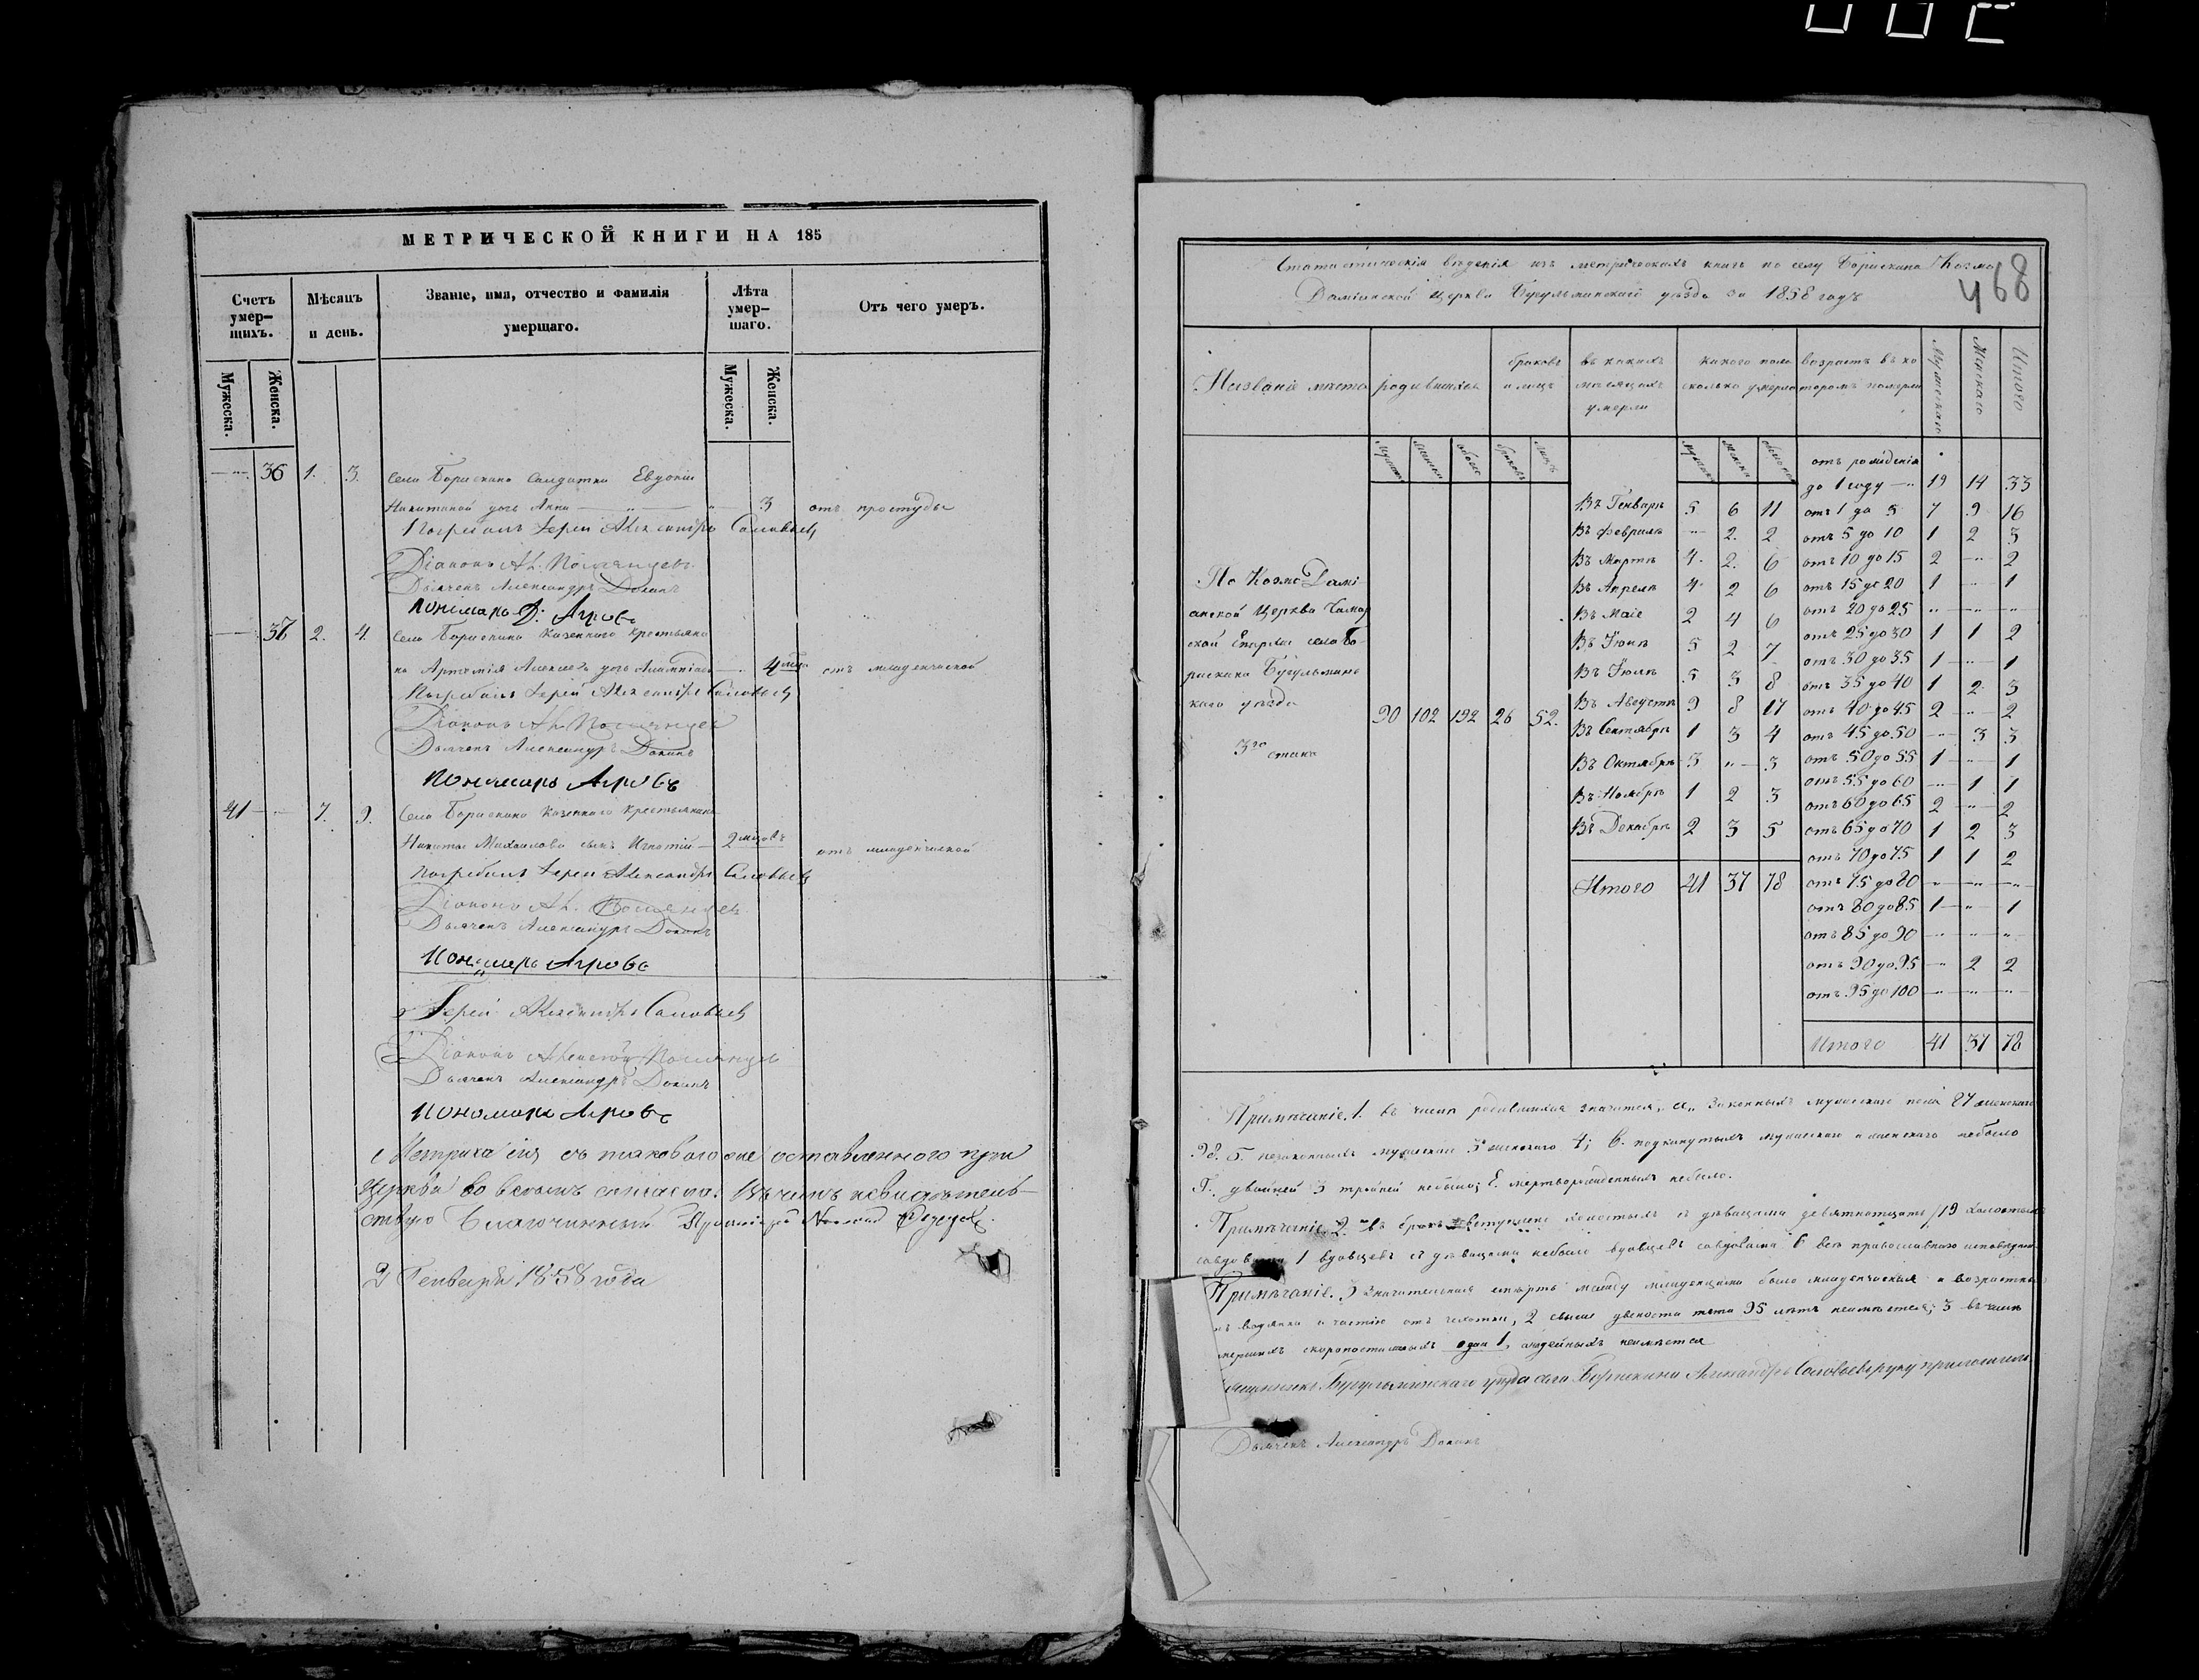 МЕТРИЧЕСКОЙ КНИГИ НА 185
Счетъ умер-щихъ.
Мѣсяцъ и день.
Званіе, имя, отчество и фамилія умершаго.
Лѣта умер-шаго.
Отъ чего умеръ.
Мужеска.
Женска.
Мужеска.
Женска.
36 1. 3. Села Борискина Солдатки Евдокіи
Никитиной дочь Анна 3 отъ простуды
Погребалъ Іерей Александръ Соловьевъ
Діаконъ Ал.
Дьячекъ Александръ Докинъ
Пономарь Д. Агровъ
37 2. 4. Села Борискина Казеннаго крестьяни
на Артемія Алексеева дочь 4 мѣс. отъ младенческой
Погребалъ Іерей Александръ Соловьевъ
Діаконъ Ал.
Дьячекъ Александръ Докинъ
Пономарь Агровъ
41 7. 9. Села Борискина Казеннаго крестьянина
Никиты Михайлова сынъ Игнатій 2 мѣсов. отъ младенческой
Погребалъ Іерей Александръ Соловьевъ
Діаконъ Ал.
Дьячекъ Александръ Докинъ
Пономарь Агровъ
Іерей Александръ Соловьевъ
Діаконъ Алексей
Дьячекъ Александръ Докинъ
Пономарь Агровъ
Метрика сія съ таковою же оставленного при
Церкви во всемъ согласна. Въ чемъ и свидѣтель-
ствую Благочинный
9 Генваря 1858 года
468
Статистическія вѣденія изъ метрическихъ книгъ по селу Борискина Козмо
Даміанской церкви Бугульминскаго уѣзда за 1858 годъ
Названіе мѣста
родившихся
браковъ и лицъ
въ какихъ месяцахъ умерли
какого пола сколько умерло
возрастъ въ ко торомъ померли
Мужскаго
Женскаго
Итого
По Козмо Дамі
анской Церкви Самар
ской Епархіи села Бо-
рискина Бугульминс
каго уѣзда
3го стана
90 102 192 26 52.
Въ Генварѣ 5 6 11
Въ Февралѣ " 2. 2
Въ Мартѣ 4. 2. 6
Въ Апрелѣ 4. 2 6
Въ Маіе 2 4 6
Въ Іюнѣ 5 2 7
Въ Іюлѣ 5 3 8
Въ Августѣ 9 8 17
Въ Сентябрѣ 1 3 4
Въ Октябрѣ 3 " 3
Въ Ноябрѣ 1 2 3
Въ Декабрѣ 2 3 5
Итого 41 37 78
отъ рожденія
до 1 году 19 14 33
отъ 1 до 5 7 9 16
отъ 5 до 10 1 2 3
отъ 10 до 15 2 " 2
отъ 15 до 20 1 " 1
отъ 20 до 25 " " "
отъ 25 до 30 1 1 2
отъ 30 до 35 1 " 1
отъ 35 до 40 1 2 3
отъ 40 до 45 2 " 2
отъ 45 до 50 " 3 3
отъ 50 до 55 1 " 1
отъ 55 до 60 " 1 1
отъ 60 до 65 2 " 2
отъ 65 до 70 1 2 3
отъ 70 до 75 1 1 2
отъ 75 до 80 " " "
отъ 80 до 85 1 " 1
отъ 85 до 90 " " "
отъ 90 до 95 " 2 2
отъ 95 до 100 " " "
Итого 41 37 78
Примѣчаніе. 1. въ числѣ родившихся значится, а, Законныхъ мужескаго пола 87 женскаго
98. Б. незаконныхъ мужеска 3 женскаго 4; В. подкинутыхъ мужескаго и женскаго небыло
Г. двойней 3 тройней небыло; Е. мертворожденныхъ небыло.
Примѣчаніе. 2. въ бракъ вступило холостыхъ съ дѣвицами девятнатцать /19 холостыхъ
совдовами 1 вдовцевъ съ дѣвицами небыло вдовцевъ совдовами 6 всѣ православнаго исповѣдан
Примѣчаніе. 3 Значительная смерть между младенцами было младенческая и возрастны
водянки и частію отъ чахотки, 2 свыше 95 лѣтъ неимѣется; 3 въ числѣ
мершихъ скоропостижныхъ один 1, неимѣется
Бугульминскаго уѣзда села Борискина Александръ Соловьевъ руку приложилъ
Дьячекъ Александръ Докинъ